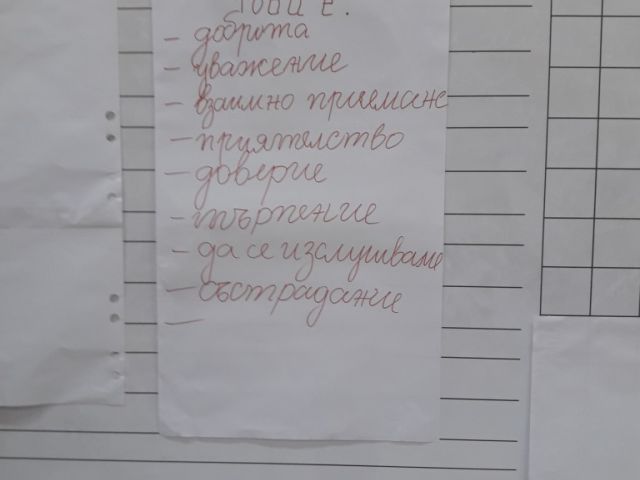 това е:
- доброта
- уважение
- взаимно приемане
- приятелство
- доверие
- търпение
- да се изслушваме
- състрадание
-